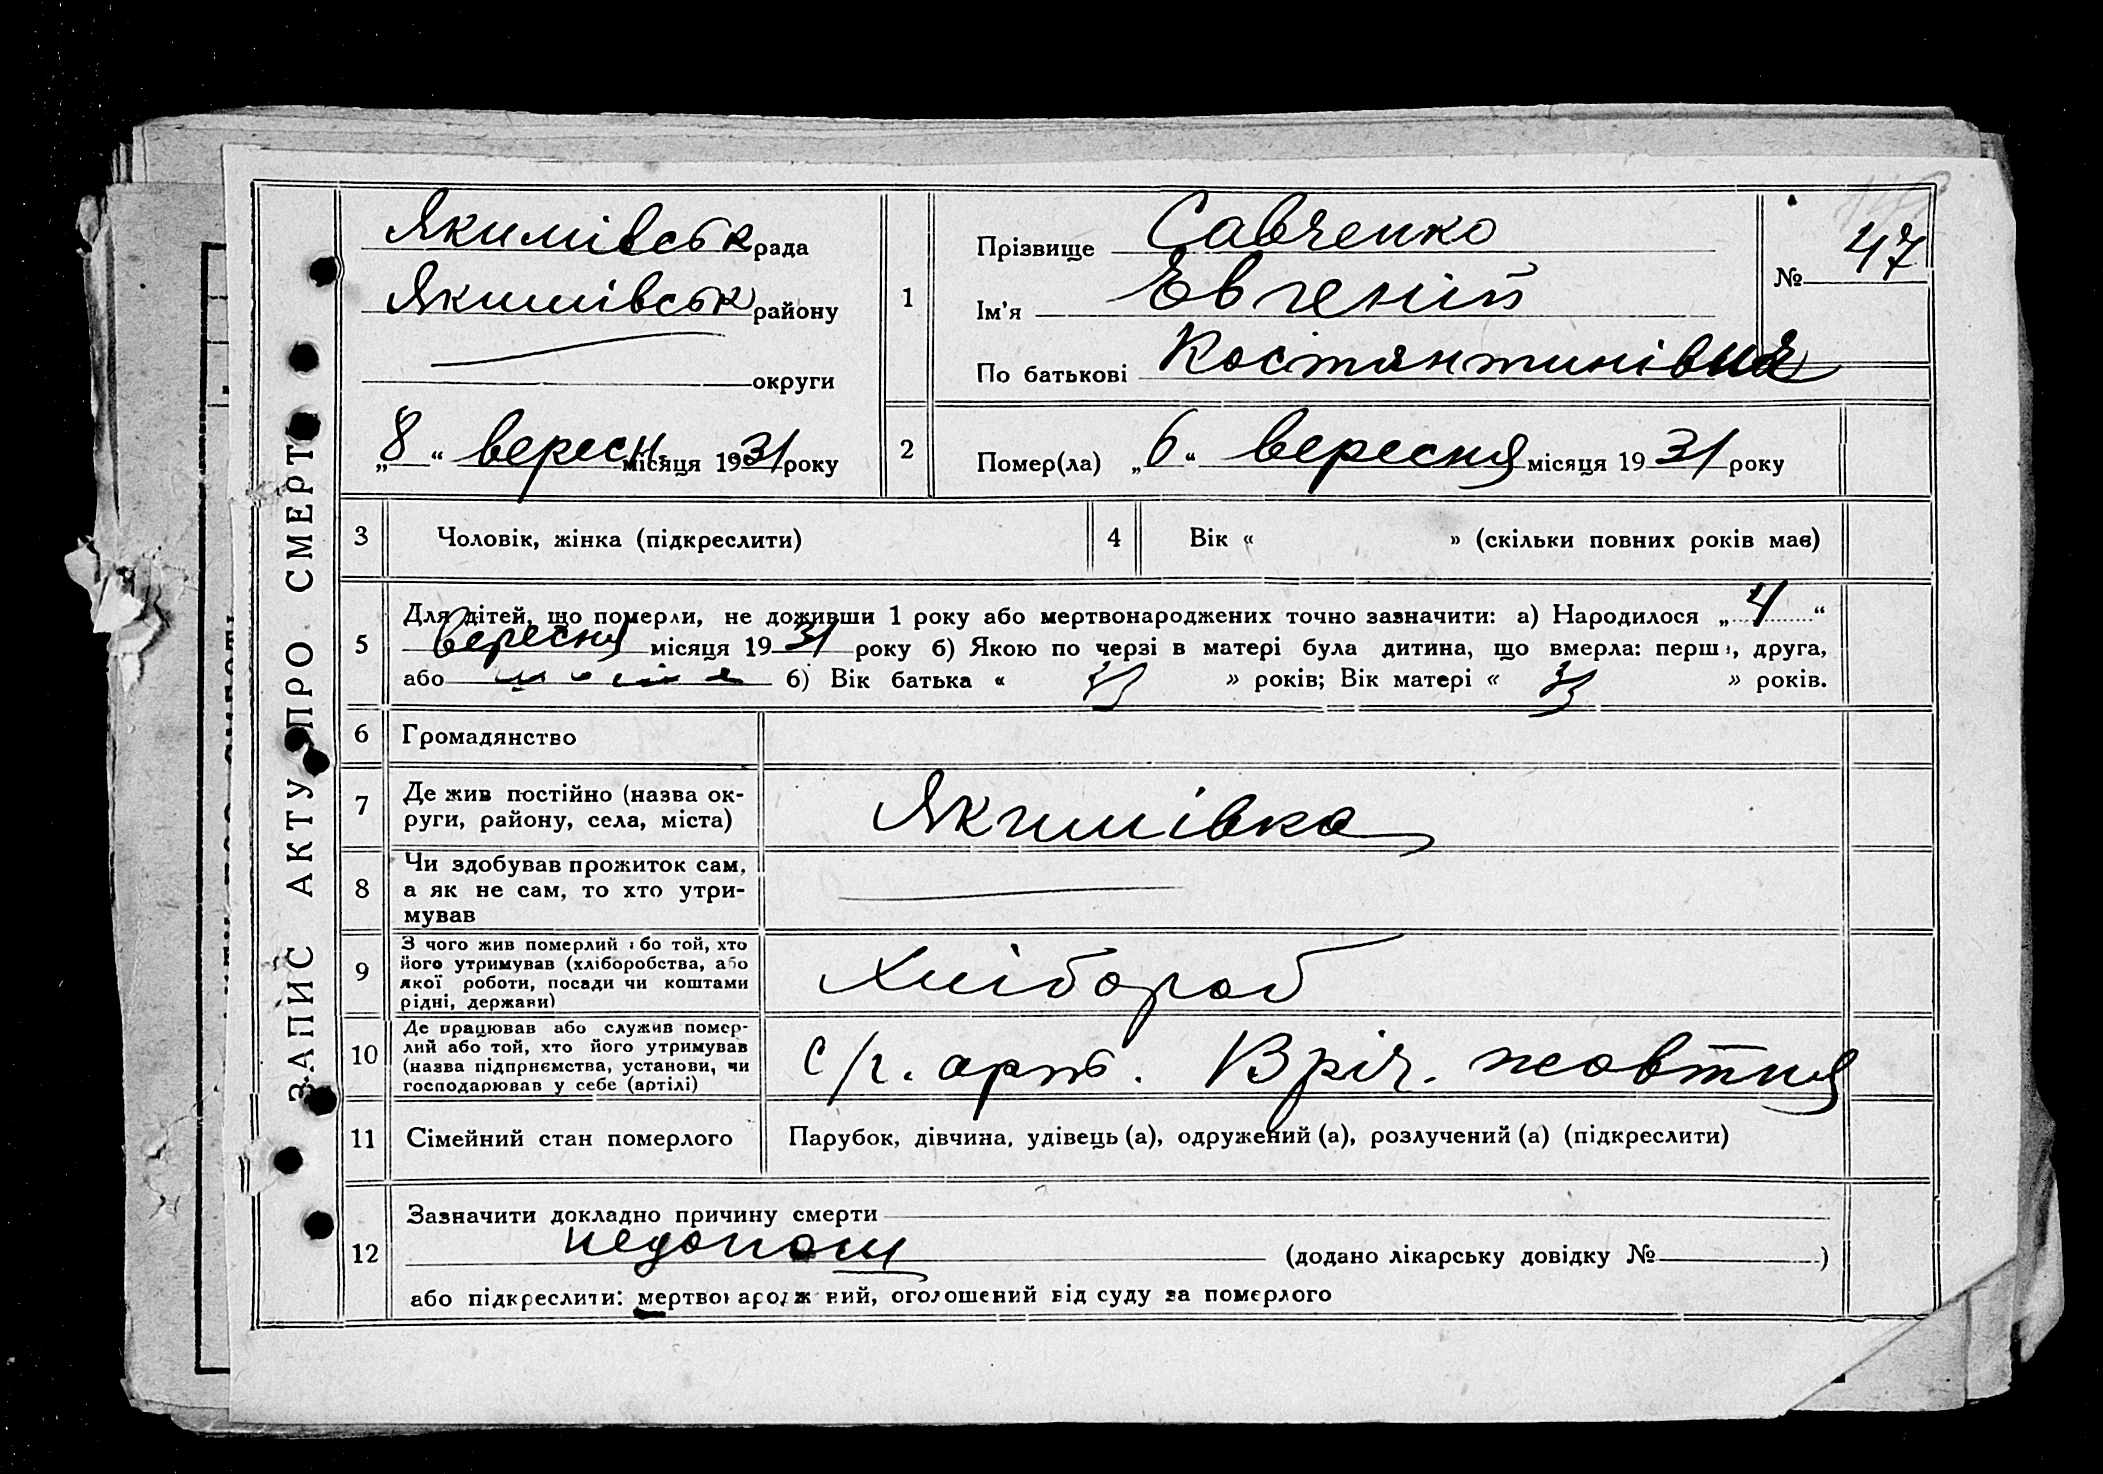 ЗАПИС АКТУ ПРО СМЕРТЬ
Якимівськ рада
Якимівськ району
округи
„8“ вересн. місяця 1931 року
1
Прізвище Савченко
Ім'я Евгеній
По батькові Костянтинівна
№ 47
2
Помер(ла) „6“ вересня місяця 1931 року
3 Чоловік, жінка (підкреслити)
4 Вік « » (скільки повних років має)
5 Для дітей, що померли, не доживши 1 року або мертвонароджених точно зазначити: а) Народилося „4“
вересня місяця 1931 року б) Якою по черзі в матері була дитина, що вмерла: перша, друга,
або шостя б) Вік батька « » років; Вік матері « » років.
6 Громадянство
7 Де жив постійно (назва ок-
руги, району, села, міста)
Якимівка
8 Чи здобував прожиток сам,
а як не сам, то хто утри-
мував
9 З чого жив померлий або той, хто
його утримував (хліборобства, або
якої роботи, посади чи коштами
рідні, держави)
Хлібороб
10 Де працював або служив помер-
лий або той, хто його утримував
(назва підприємства, установи, чи
господарював у себе (артілі)
с/г. арт. Вріч. жовтня
11 Сімейний стан померлого
Парубок, дівчина, удівець (а), одружений (а), розлучений (а) (підкреслити)
12 Зазначити докладно причину смерти
недонош (додано лікарську довідку № )
або підкреслити: мертвонароджений, оголошений від суду за померлого